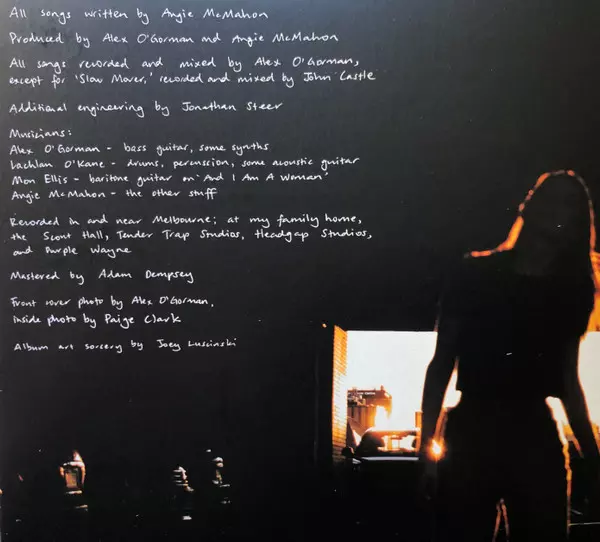 All songs written by Angie McMahon
Produced by Alex O'Gorman and Angie McMahon
All songs recorded and mixed by Alex O'Gorman,
except for 'Slow Mover,' recorded and mixed by John Castle
Additional engineering by Jonathan Steer
Musicians:
Alex O'Gorman - bass guitar, some synths
Lachlan O'Kane - drums, percussion, some acoustic guitar
Mon Ellis - baritone guitar on 'And I Am A Woman'
Angie McMahon - the other stuff
Recorded in and near Melbourne; at my family home,
the Scout Hall, Tender Trap Studios, Headgap Studios,
and Purple Wayne
Mastered by Adam Dempsey
Front cover photo by Alex O'Gorman,
inside photo by Paige Clark
Album art sorcery by Joey Luscinski